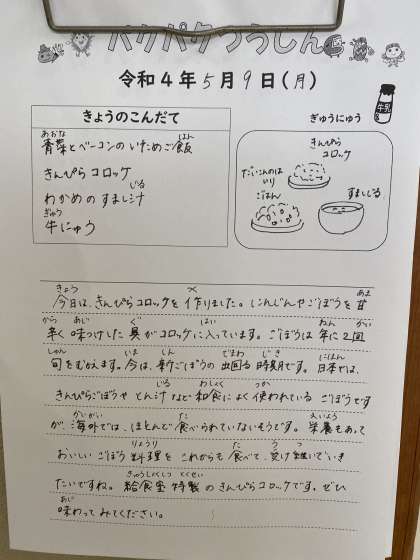 パクパクつうしん
令和4年5月9日(月)
きょうのこんだて
青菜とベーコンのいためご飯
きんぴらコロッケ
わかめのすまし汁
牛にゅう
ぎゅうにゅう
牛乳
きんぴら
コロッケ
だいこんのは
いり
ごはん
すましじる
今日は、きんぴらコロッケを作りました。にんじんやごぼうを甘
辛く味つけした具がコロッケに入っています。ごぼうは年に2回
旬をむかえます。今は、新ごぼうの出回る時期です。日本では、
きんぴらごぼうやとん汁など和食によく使われているごぼうです
が、海外では、ほとんど食べられていないそうです。栄養もあって
おいしいごぼう料理をこれからも食べて、受け継いでいき
たいですね。給食室特製のきんぴらコロッケです。ぜひ
味わってみてください。